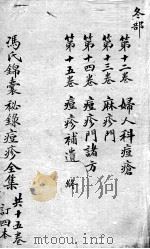 冬部
第十二卷 婦人科痘瘡
第十三卷 麻疹門
第十四卷 痘疹門諸方
第十五卷 痘疹補遺
馮氏錦囊秘錄痘疹全集 共十五卷
訂四本